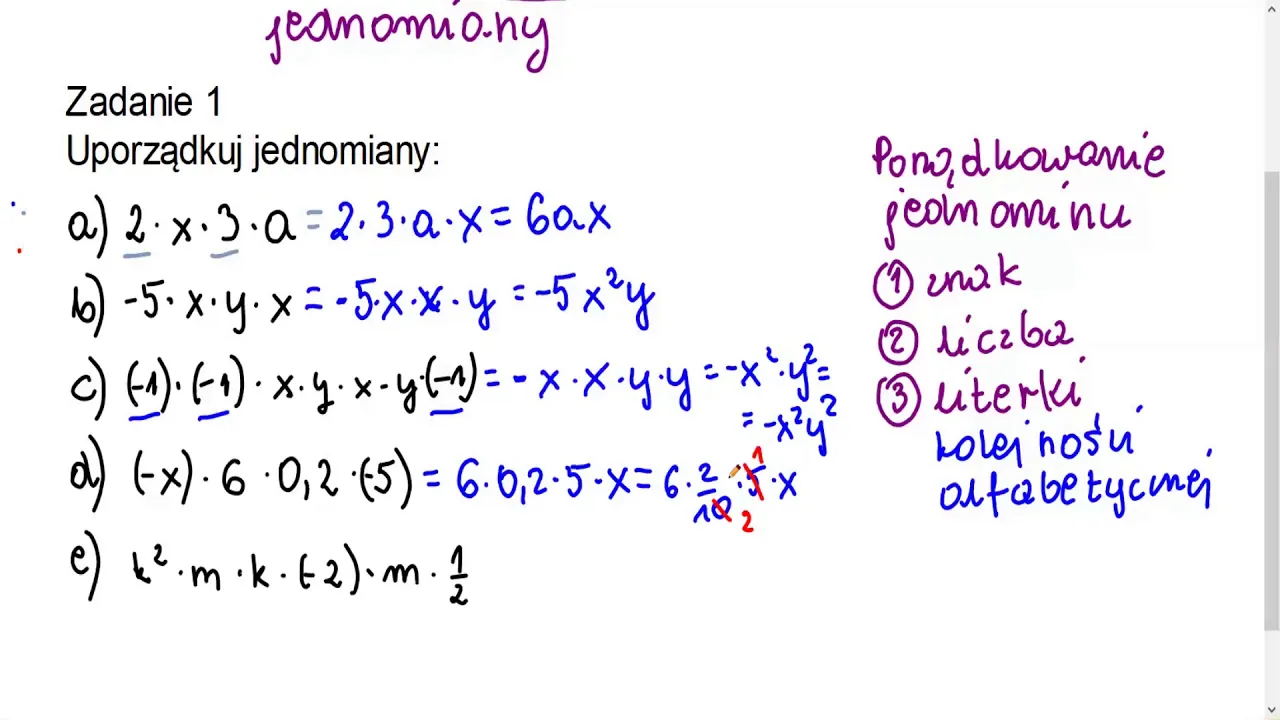 jednomiany
Zadanie 1
Uporządkuj jednomiany:
a) 2 · x · 3 · a = 2 · 3 · a · x = 6ax
b) -5 · x · y · x = -5 · x · x · y = -5x²y
c) (-1) · (-1) · x · y · x · y · (-1) = - x · x · y · y = -x² · y² =
= -x²y²
d) (-x) · 6 · 0,2 · (-5) = 6 · 0,2 · 5 · x = 6 · 2/10 · 5 · x
1
2
e) k² · m · k · (-2) · m · 1/2
Porządkowanie
jednominu
① znak
② liczba
③ literki
kolejności
alfabetycznej